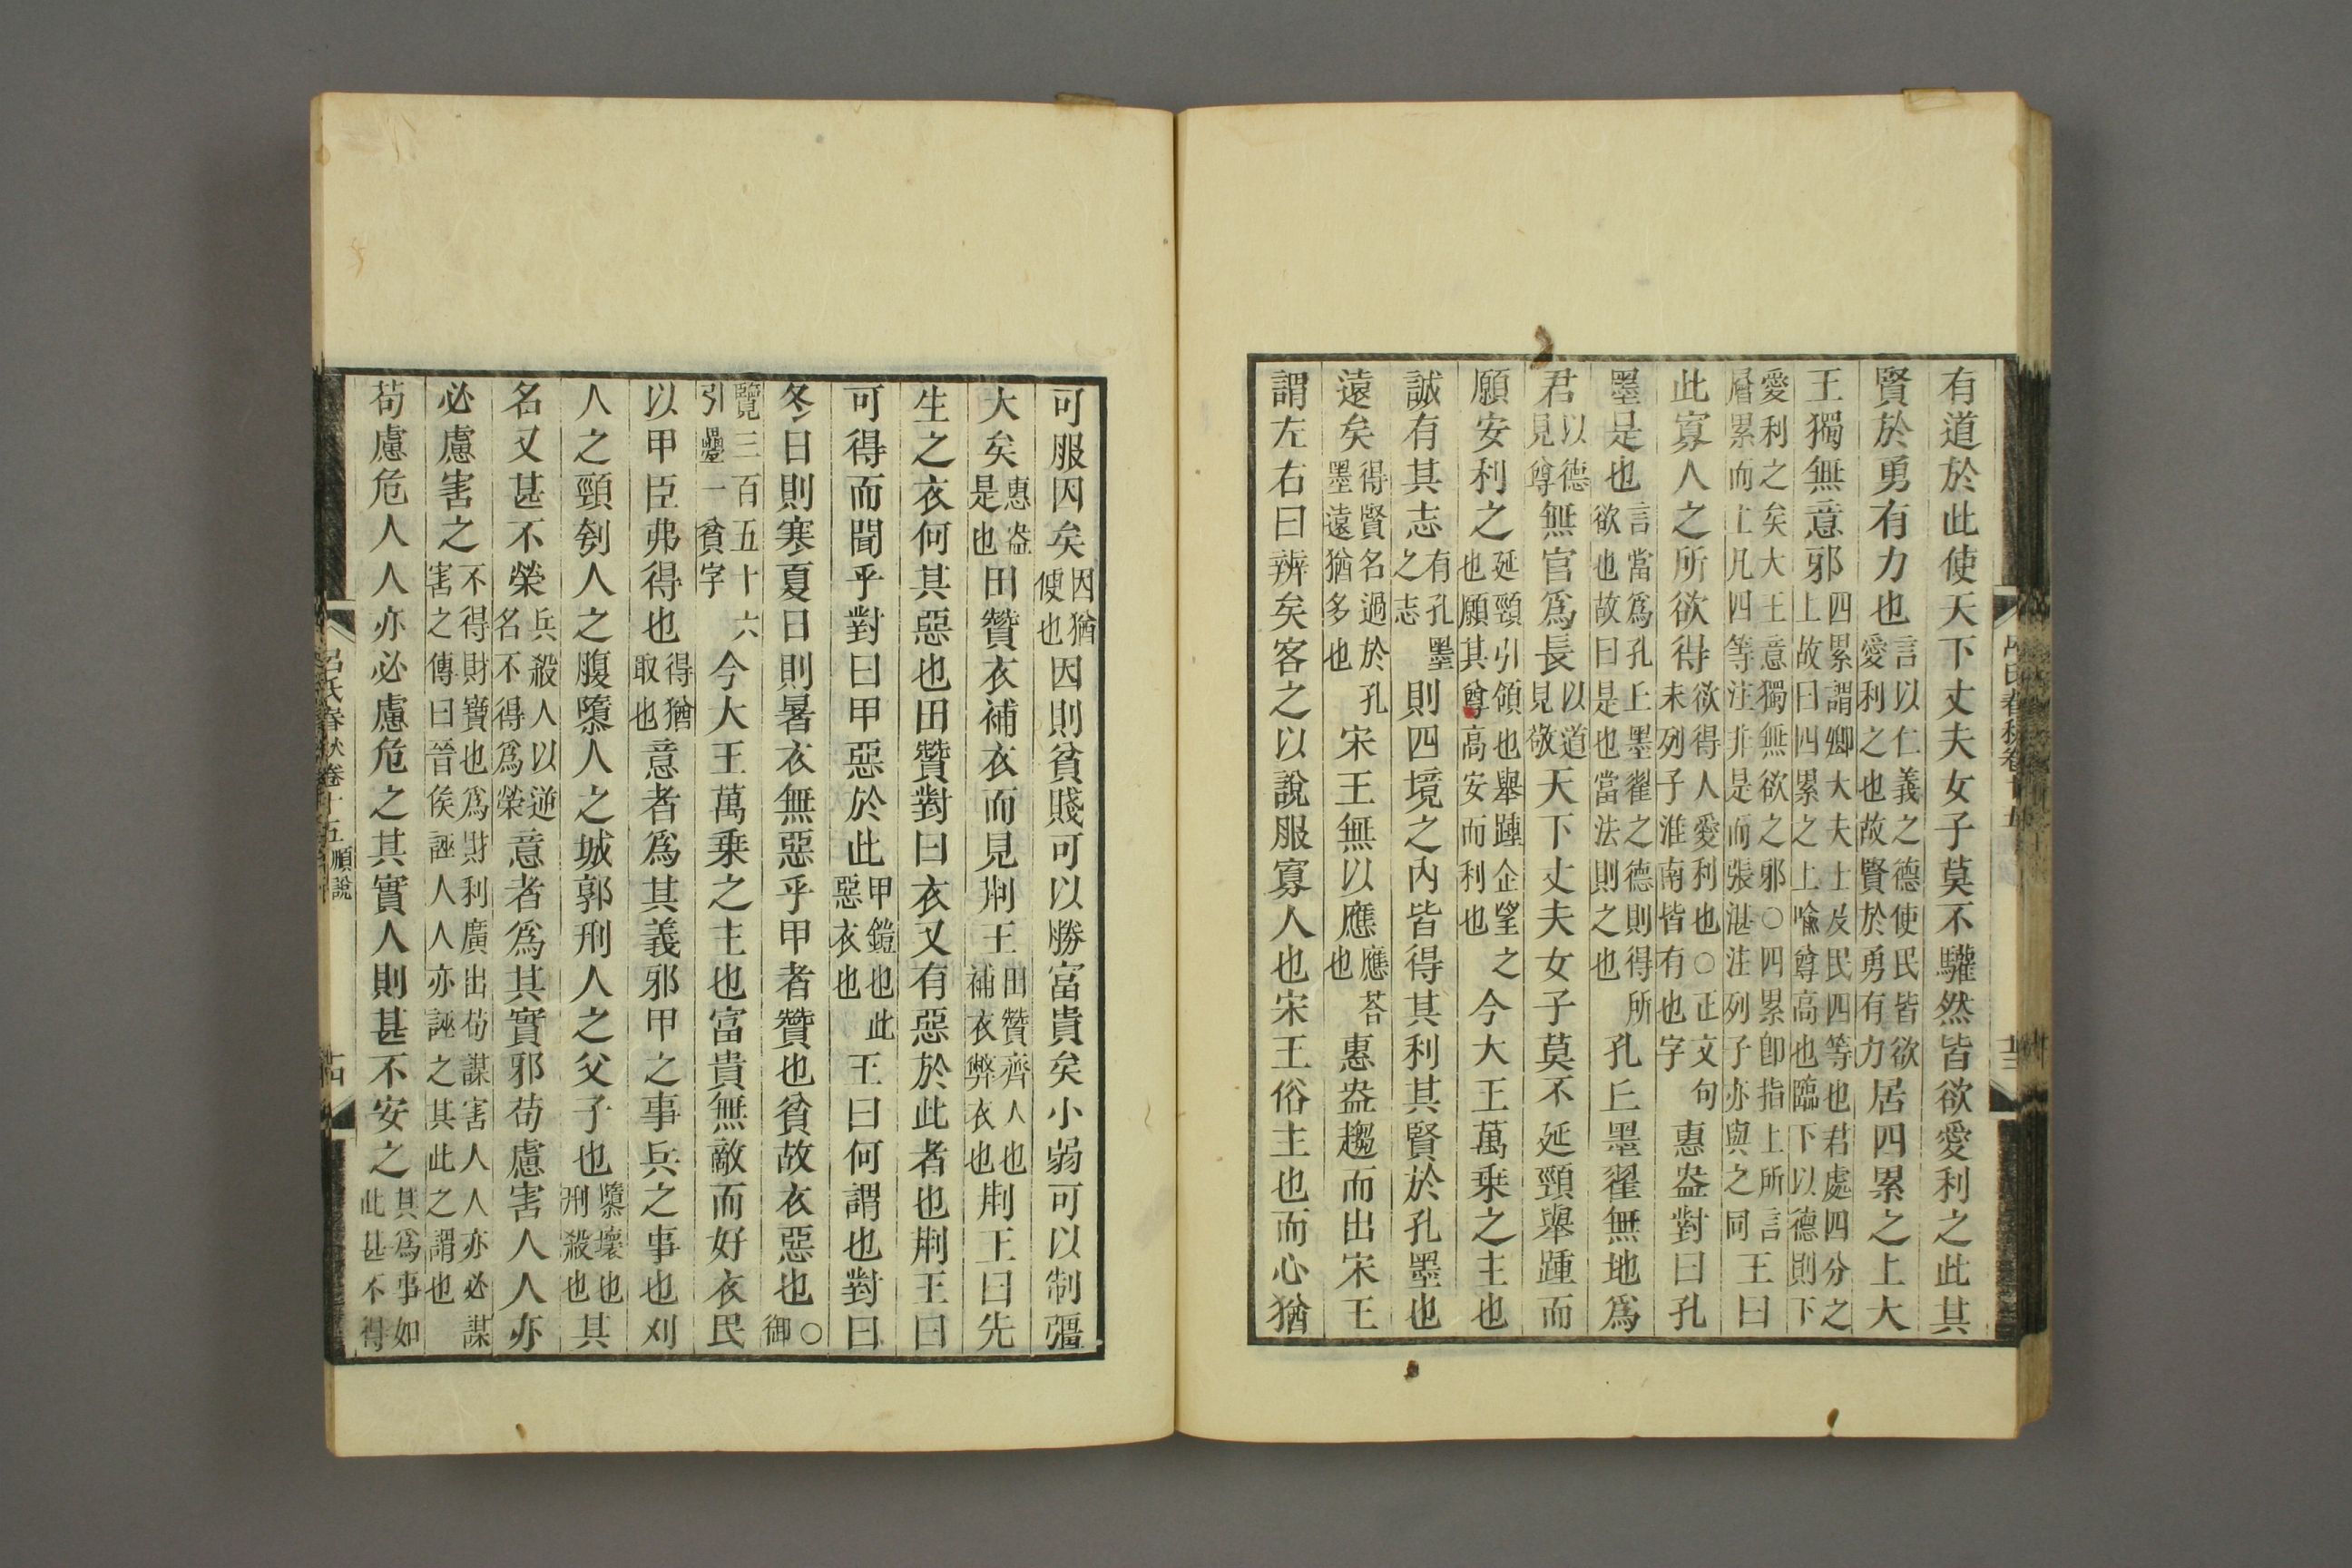 呂氏春秋卷十五
十三
有道於此使天下丈夫女子莫不驩然皆欲愛利之此其
賢於勇有力也言以仁義之德使民皆欲愛利之也故賢於勇有力居四累之上大
王獨無意邪四累謂卿大夫士及民四等也君處四分之上故曰四累之上喻尊高也臨下以德則下
愛利之矣大王意獨無欲之邪○四累卽指上所言層累而上凡四等注非是而張湛注列子亦與之同王曰
此寡人之所欲得欲得人愛利也○正文句末列子淮南皆有也字惠盎對曰孔
墨是也言當爲孔丘墨翟之德則得所欲也故曰是也當法則之也孔丘墨翟無地爲
君以德見尊無官爲長以道見敬天下丈夫女子莫不延頸舉踵而
願安利之延頸引領也舉踵企望之也願其尊高安而利也今大王萬乘之主也
誠有其志有孔墨之志則四境之內皆得其利其賢於孔墨也
遠矣得賢名過於孔墨遠猶多也宋王無以應應荅也惠盎趨而出宋王
謂左右曰辨矣客之以說服寡人也宋王俗主也而心猶
可服因矣因猶便也因則貧賤可以勝富貴矣小弱可以制彊
大矣惠盎是也田贊衣補衣而見荆王田贊齊人也補衣弊衣也荆王曰先
生之衣何其惡也田贊對曰衣又有惡於此者也荆王曰
可得而聞乎對曰甲惡於此甲鎧也此惡衣也王曰何謂也對曰
冬日則寒夏日則暑衣無惡乎甲者贊也貧故衣惡也○御
覽三百五十六引疊一貧字今大王萬乘之主也富貴無敵而好衣民
以甲臣弗得也得猶取也意者爲其義邪甲之事兵之事也刈
人之頸刳人之腹隳人之城郭刑人之父子也隳壞也刑殺也其
名又甚不榮兵殺人以逆名不得爲榮意者爲其實邪苟慮害人人亦
必慮害之不得財寶也爲財利廣出苟謀害人人亦必謀害之傳曰晉侯誣人人亦誣之其此之謂也
苟慮危人人亦必慮危之其實人則甚不安之其爲事如此甚不得
呂氏春秋卷十五順說
十四